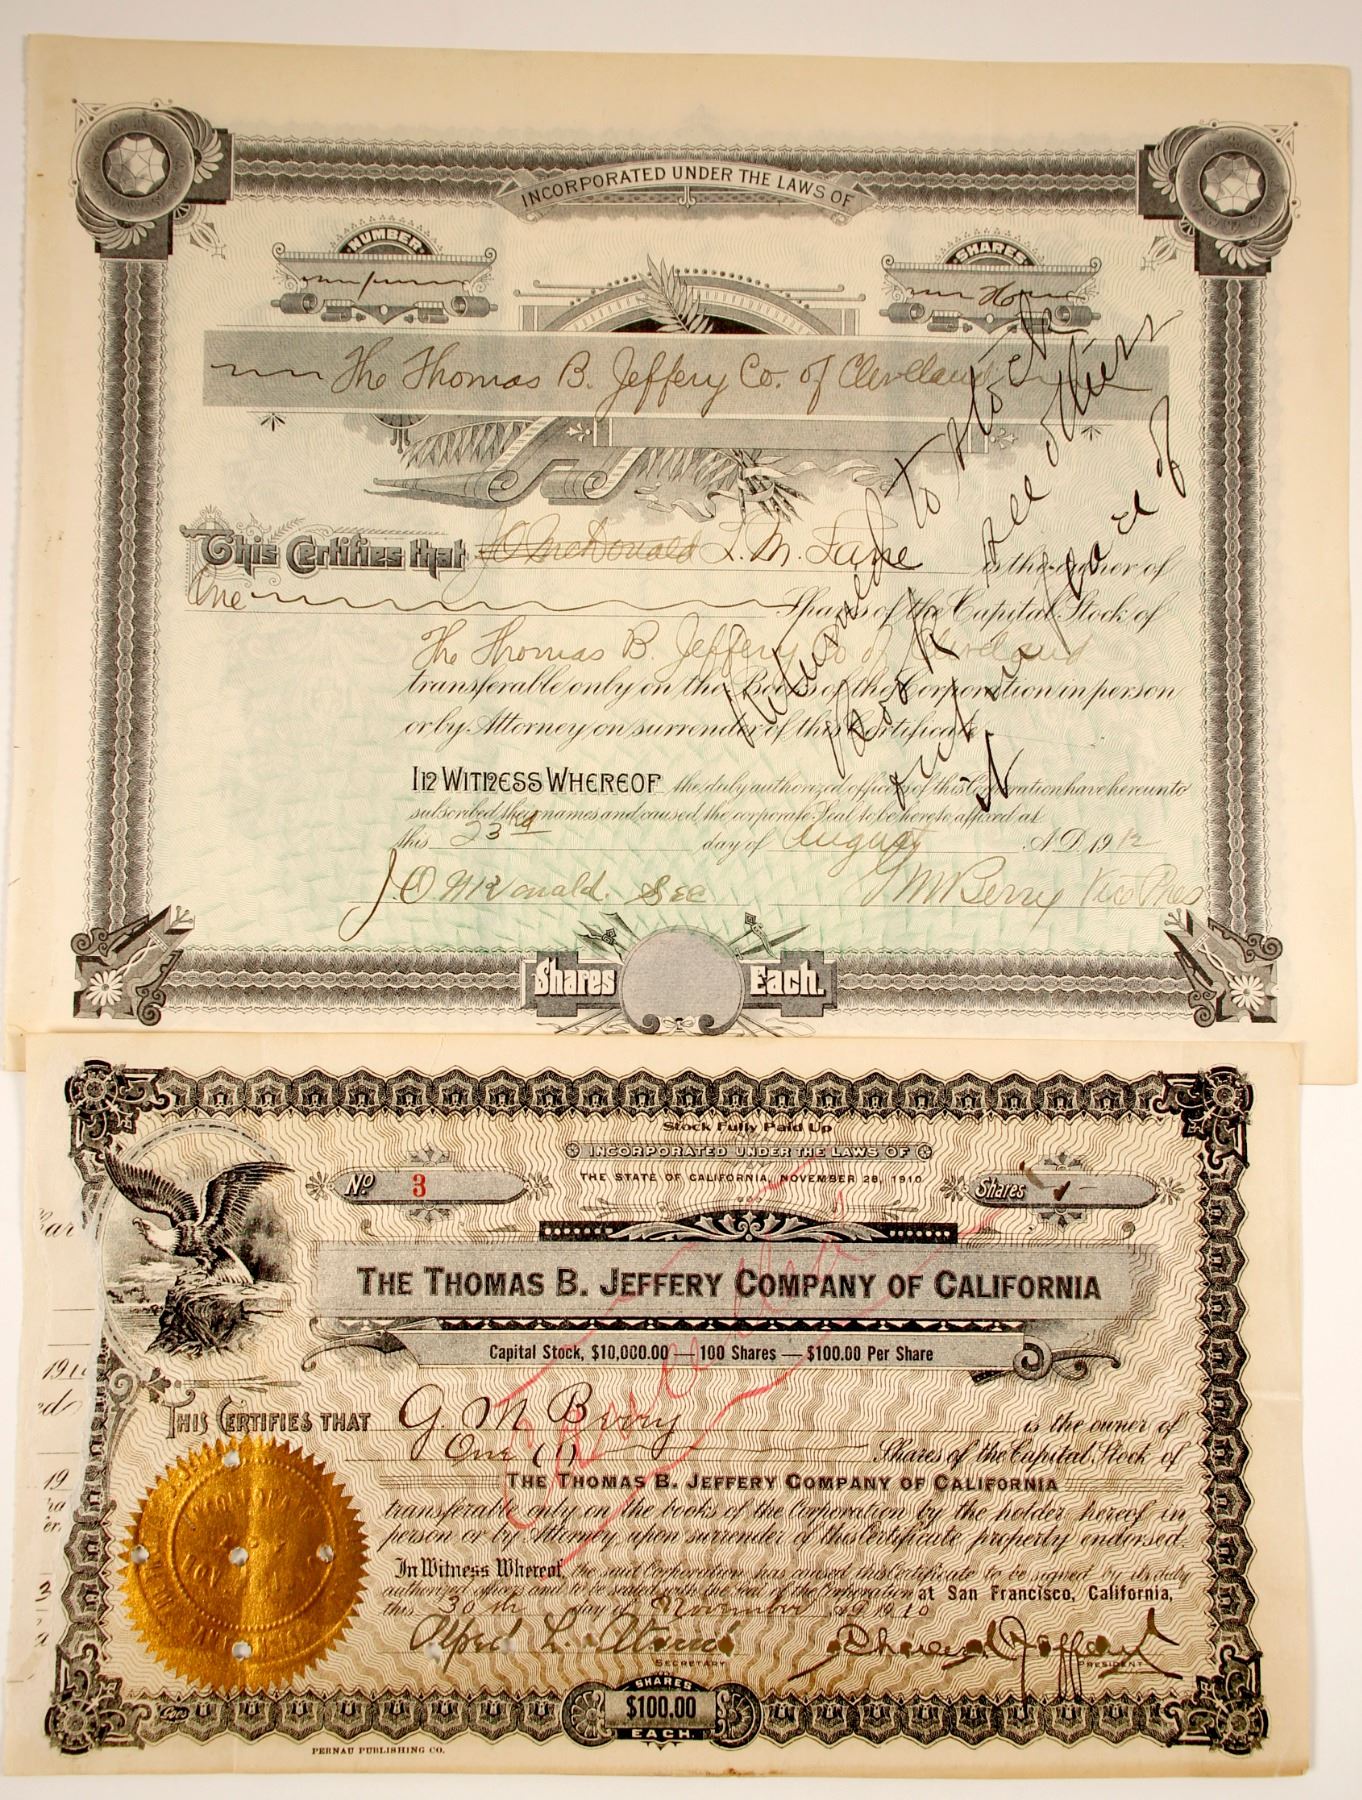 INCORPORATED UNDER THE LAWS OF
NUMBER
SHARES
1
The Thomas B. Jeffery Co. of Cleveland
This Certifies that J O McDonald L. M. Lane is the owner of
One Shares of the Capital Stock of
The Thomas B. Jeffery Co of Cleveland
transferable only on the Books of the Corporation in person
or by Attorney on surrender of this Certificate
IN WITNESS WHEREOF the duly authorized officers of this Corporation have hereunto
subscribed their names and caused the corporate Seal to be hereto affixed at
this 23rd day of August A.D. 1912
J. O McDonald. Sec
G M Berry Vice Pres
Returned to stock
Book all others
put in place of
Shares Each.
Stock Fully Paid Up
INCORPORATED UNDER THE LAWS OF
THE STATE OF CALIFORNIA, NOVEMBER 28, 1910
No 3
Shares 1
THE THOMAS B. JEFFERY COMPANY OF CALIFORNIA
Capital Stock, $10,000.00 — 100 Shares — $100.00 Per Share
Cancelled
THIS CERTIFIES THAT G. M Berry is the owner of
One (1) Shares of the Capital Stock of
THE THOMAS B. JEFFERY COMPANY OF CALIFORNIA
transferable only on the books of the Corporation by the holder hereof in
person or by Attorney upon surrender of this Certificate properly endorsed.
In Witness Whereof, the said Corporation has caused this Certificate to be signed by its duly
authorized officers and to be sealed with the seal of the Corporation at San Francisco, California,
this 30th day of November A.D. 1910
Alfred L.
SECRETARY
Charles T Jeffery
PRESIDENT
SHARES
$100.00
EACH
PERNAU PUBLISHING CO.